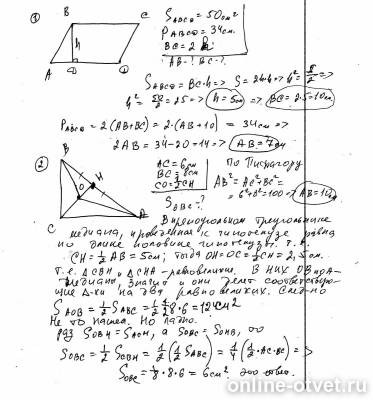 ① B C
S ABCD = 50см²
P ABCD = 34см
BC = 2h
AB-? BC-?
h
A D D
S ABCD = BC·h => S = 2h·h => h² = S/2 =>
h² = 50/2 = 25 => h = 5см => BC = 2·5 = 10см
P ABCD = 2(AB+BC) = 2·(AB+10) = 34см =>
2AB = 34-20 = 14 => AB = 7см
② B
AC = 6см
BC = 8см
CO = 1/2 CH
S OBC = ?
По Пифагору
AB² = AC² + BC² =
= 6² + 8² = 100 => AB = 10
O H
C A
В прямоугольном треугольнике
медиана, проведенная к гипотенузе равна
по длине половине гипотенузы. т.е.
CH = 1/2 AB = 5см; тогда OH = OC = 1/2 CH = 2,5см.
т.е. ΔCBH и ΔCHA - равновеликие. В них OB и OA -
медианы. Значит и они делят соответствую-
щие Δ-ки на два равновеликих. След-но
S AOB = 1/2 S ABC = 1/2 · 1/2 8·6 = 12см²
Не то нашел. Но ладно.
раз S OBH = S AOH, а S OBC = S OHB, то
S OBC = 1/2 S CBH = 1/2 (1/2 S ABC) = 1/4 (1/2 · AC·BC) =>
S OBC = 1/8 · 8 · 6 = 6см² это ответ.
online-otvet.ru